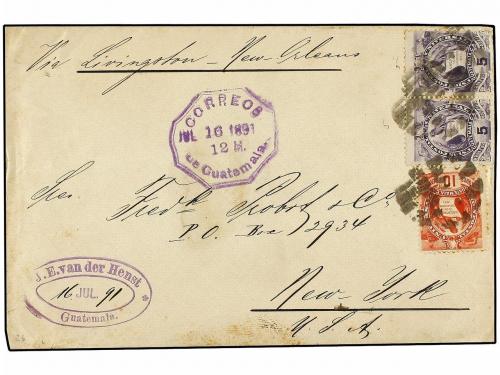 Via Livingston - New-Orleans
5
5
10
CORREOS
JUL 16 1891
12 M.
de Guatemala.
Sres. Fredk Probst & Co
P.O. Box 2934
New York
U.S.A.
J.E. van der Henst
16 JUL. 91
Guatemala.